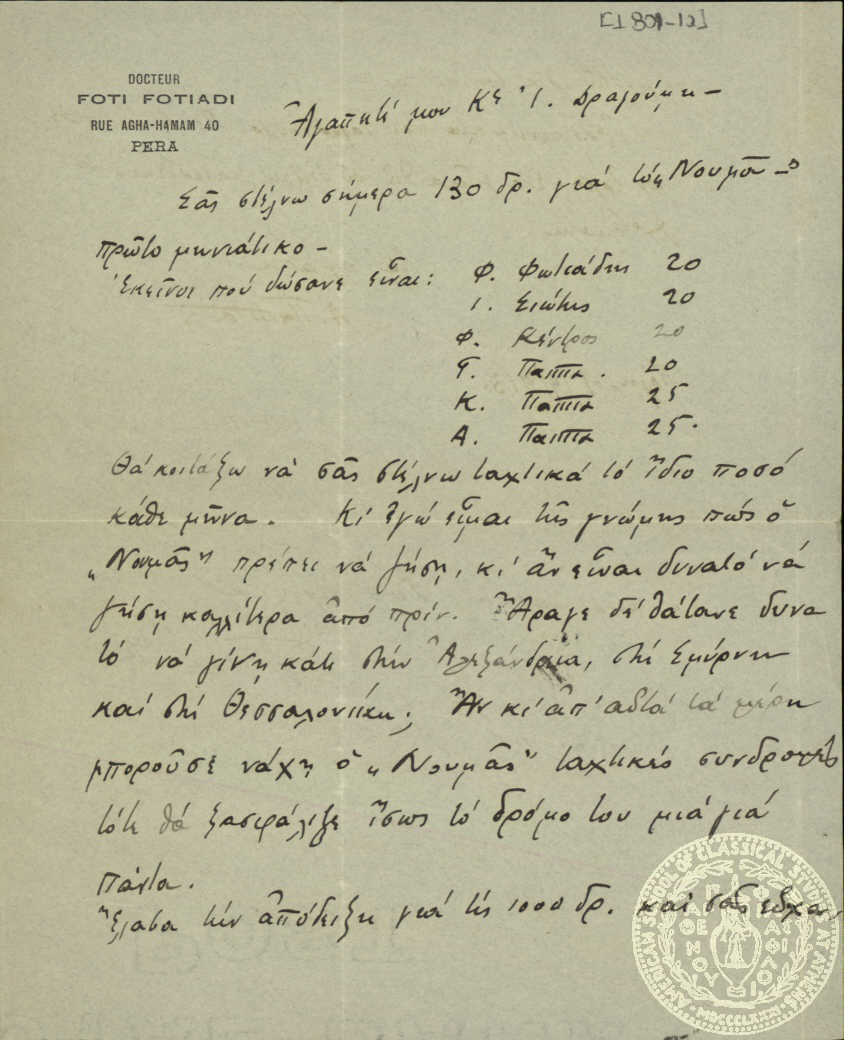 [1801-12]
DOCTEUR
FOTI FOTIADI
RUE AGHA-HAMAM 40
PERA
Ἀγαπητέ μου Κε Ἴ. Δραγούμη —
Σᾶς στέλνω σήμερα 130 δρ. γιά τὸν Νουμᾶ —
πρῶτο μηνιάτικο —
Ἐκεῖνοι πού δώσανε εἶναι: Φ. Φωτιάδης 20
Ι. Σιώτης 20
Φ. Κέντρος 20
Γ. Παππᾶ. 20
Κ. Παππᾶ 25
Α. Παππᾶ 25.
Θά κοιτάξω νά σᾶς στέλνω ταχτικά τό ἴδιο ποσό
κάθε μῆνα. Κι ἐγώ εἶμαι τῆς γνώμης πώς ὁ
„Νουμᾶς" πρέπει νά ζήση, κι' ἄν εἶναι δυνατό νά
ζήση καλλίτερα ἀπό πρίν. Ἄραγε δέ θάτανε δυνα
τό νά γίνη κάτι στήν Ἀλεξάνδρεια, στή Σμύρνη
καί στή Θεσσαλονίκη; Ἄν κι' ἀπ' αὐτά τά μέρη
μποροῦσε νάχη ὁ „Νουμᾶς" ταχτικές συνδρομές
τότε θά ξασφάλιζε ἴσως τό δρόμο του μιά γιά
πάντα.
Ἔλαβα τήν ἀπόδειξη γιά τίς 1000 δρ. καί σᾶς εὐχα
AMERICAN SCHOOL OF CLASSICAL STUDIES AT ATHENS
MDCCCLXXXI